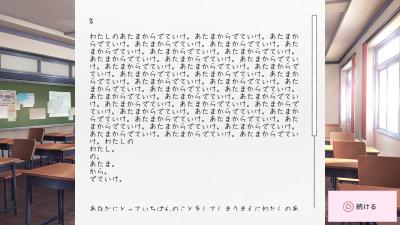 %
わたしのあたまからでていけ。あたまからでていけ。あたまか
らでていけ。あたまからでていけ。あたまからでていけ。あた
まからでていけ。あたまからでていけ。あたまからでていけ。
あたまからでていけ。あたまからでていけ。あたまからでてい
け。あたまからでていけ。あたまからでていけ。あたまからで
ていけ。あたまからでていけ。あたまからでていけ。あたまか
らでていけ。あたまからでていけ。あたまからでていけ。あた
まからでていけ。あたまからでていけ。あたまからでていけ。
あたまからでていけ。あたまからでていけ。あたまからでてい
け。あたまからでていけ。あたまからでていけ。あたまからで
ていけ。あたまからでていけ。あたまからでていけ。あたまか
らでていけ。あたまからでていけ。あたまからでていけ。あた
まからでていけ。あたまからでていけ。あたまからでていけ。
あたまからでていけ。あたまからでていけ。あたまからでてい
け。わたしの
わたし。
の。
あたま。
から。
でていけ。
あなたにとっていちばんのことをしてしまうまえにわたしのあ
続ける